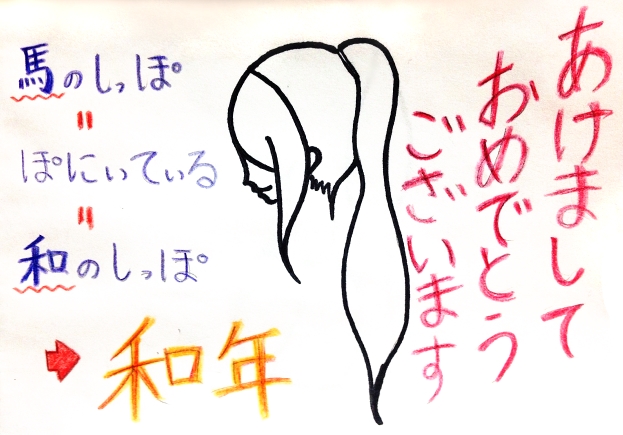 あけまして
おめでとう
ございます
馬のしっぽ
=
ぽにぃているる
=
和のしっぽ
➡ 和年